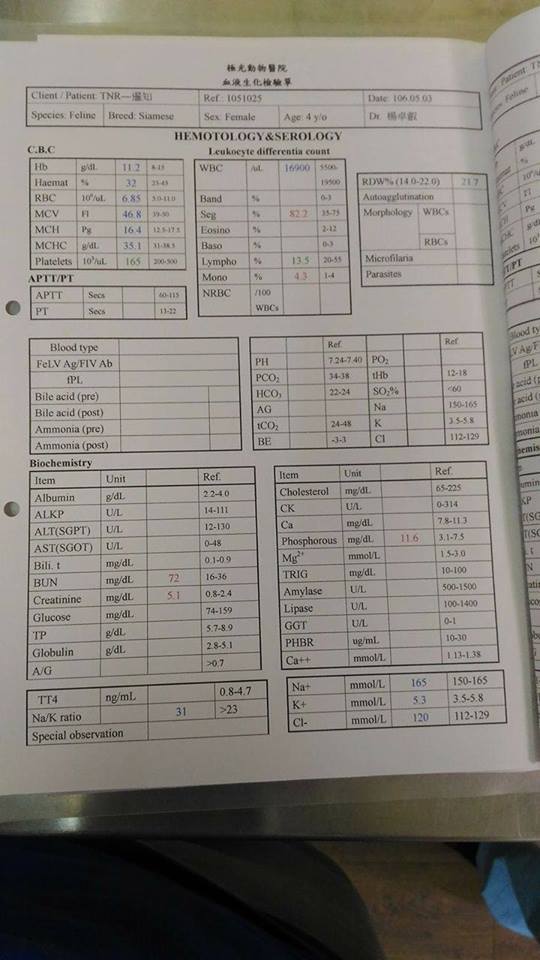 極光動物醫院
血液生化檢驗單
Client / Patient: TNR—邏知 Ref.: 1051025 Date: 106.05.03
Species: Feline Breed: Siamese Sex: Female Age: 4 y/o Dr. 楊卓叡
HEMOTOLOGY&SEROLOGY
C.B.C Leukocyte differentia count
Hb g/dL 11.2 8-15
Haemat % 32 25-45
RBC 10⁶/uL 6.85 5.0-11.0
MCV Fl 46.8 39-50
MCH Pg 16.4 12.5-17.5
MCHC g/dL 35.1 31-38.5
Platelets 10³/uL 165 200-500
WBC /uL 16900 5500-
19500
Band % 0-3
Seg % 82.2 35-75
Eosino % 2-12
Baso % 0-3
Lympho % 13.5 20-55
Mono % 4.3 1-4
NRBC /100
WBCs
RDW% (14.0-22.0) 21.7
Autoagglutination
Morphology WBCs
RBCs
Microfilaria
Parasites
APTT/PT
APTT Secs 60-115
PT Secs 13-22
Blood type
FeLV Ag/FIV Ab
fPL
Bile acid (pre)
Bile acid (post)
Ammonia (pre)
Ammonia (post)
Ref. Ref.
PH 7.24-7.40 PO₂
PCO₂ 34-38 tHb 12-18
HCO₃ 22-24 SO₂% <60
AG Na 150-165
tCO₂ 24-48 K 3.5-5.8
BE -3-3 Cl 112-129
Biochemistry
Item Unit Ref.
Albumin g/dL 2.2-4.0
ALKP U/L 14-111
ALT(SGPT) U/L 12-130
AST(SGOT) U/L 0-48
Bili. t mg/dL 0.1-0.9
BUN mg/dL 72 16-36
Creatinine mg/dL 5.1 0.8-2.4
Glucose mg/dL 74-159
TP g/dL 5.7-8.9
Globulin g/dL 2.8-5.1
A/G >0.7
Item Unit Ref.
Cholesterol mg/dL 65-225
CK U/L 0-314
Ca mg/dL 7.8-11.3
Phosphorous mg/dL 11.6 3.1-7.5
Mg²⁺ mmol/L 1.5-3.0
TRIG mg/dL 10-100
Amylase U/L 500-1500
Lipase U/L 100-1400
GGT U/L 0-1
PHBR ug/mL 10-30
Ca++ mmol/L 1.13-1.38
TT4 ng/mL 0.8-4.7
Na/K ratio 31 >23
Special observation
Na+ mmol/L 165 150-165
K+ mmol/L 5.3 3.5-5.8
Cl- mmol/L 120 112-129